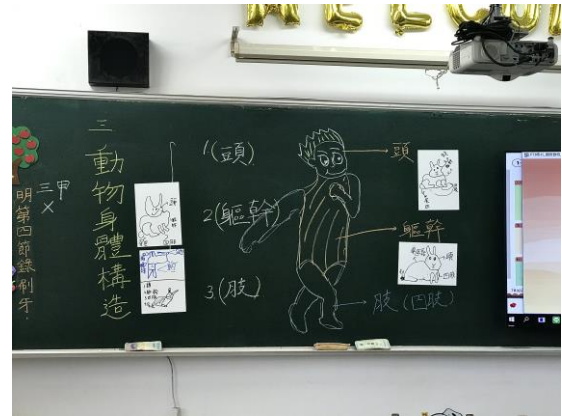 WELCOM
三甲
×
明第四節錄刷牙.
三 動物身體構造
1.(頭)
2.(軀幹)
3.(肢)
頭
軀幹
肢(四肢)